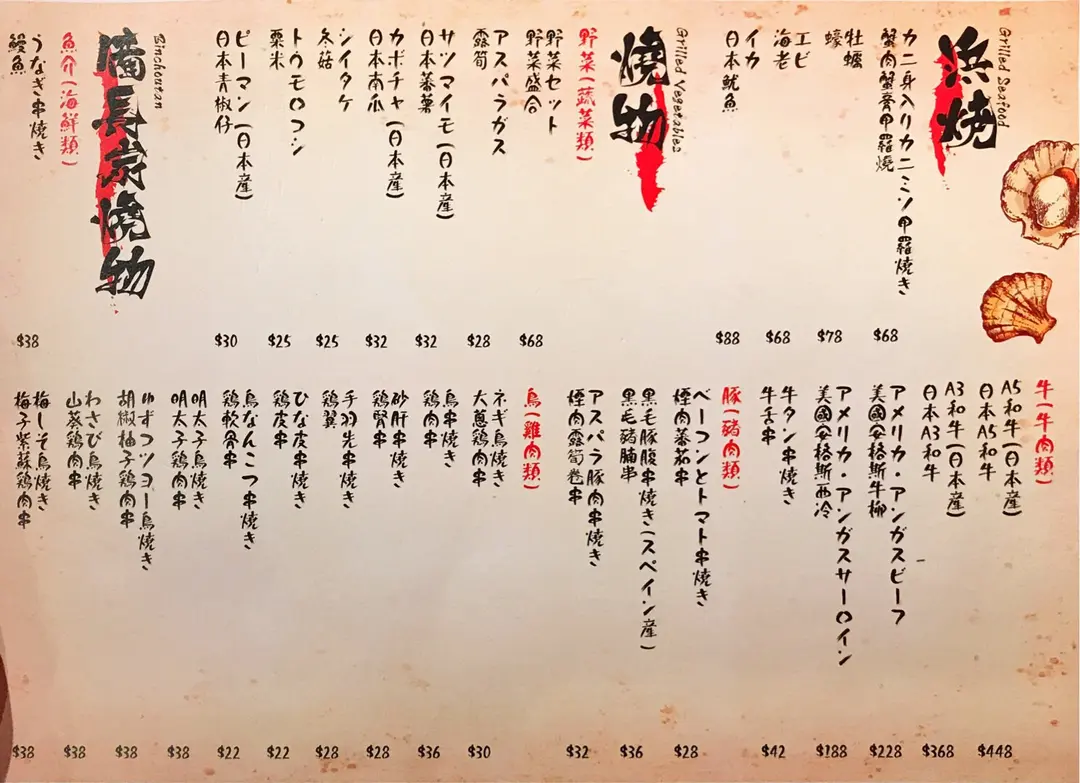 浜燒
Grilled Seafood
カニ身入りカニミソ甲羅焼き
蟹肉蟹膏甲羅燒
$68
牡蠣
蠔
$78
エビ
海老
$68
イカ
日本魷魚
$88
燒物
Grilled Vegetables
野菜(蔬菜類)
野菜セット
野菜盛合
$68
アスパラガス
露筍
$28
サツマイモ(日本産)
日本蕃薯
$32
カボチャ(日本産)
日本南瓜
$32
シイタケ
冬菇
$25
トウモロコシ
粟米
$25
ピーマン(日本産)
日本青椒仔
$30
Binchoutan
備長炭燒物
魚介(海鮮類)
うなぎ串焼き
鰻魚
$38
牛(牛肉類)
A5和牛(日本産)
日本A5和牛
$448
A3和牛(日本産)
日本A3和牛
$368
アメリカ・アンガスビーフ
美國安格斯牛柳
$228
アメリカ・アンガスサーロイン
美國安格斯西冷
$188
牛タン串焼き
牛舌串
$42
豚(豬肉類)
ベーコンとトマト串焼き
煙肉蕃茄串
$28
黒毛豚腹串焼き(スペイン産)
黒毛豬腩串
$36
アスパラ豚肉串焼き
煙肉露筍卷串
$32
鳥(雞肉類)
ネギ鳥焼き
大蔥鶏肉串
$30
鳥串焼き
鶏肉串
$36
砂肝串焼き
鶏腎串
$28
手羽先串焼き
鶏翼
$28
ひな皮串焼き
鶏皮串
$22
鳥なんこつ串焼き
鶏軟骨串
$22
明太子鳥焼き
明太子鶏肉串
$38
ゆずコツヨー鳥焼き
胡椒柚子鶏肉串
$38
わさび鳥焼き
山葵鶏肉串
$38
梅しそ鳥焼き
梅子紫蘇鶏肉串
$38